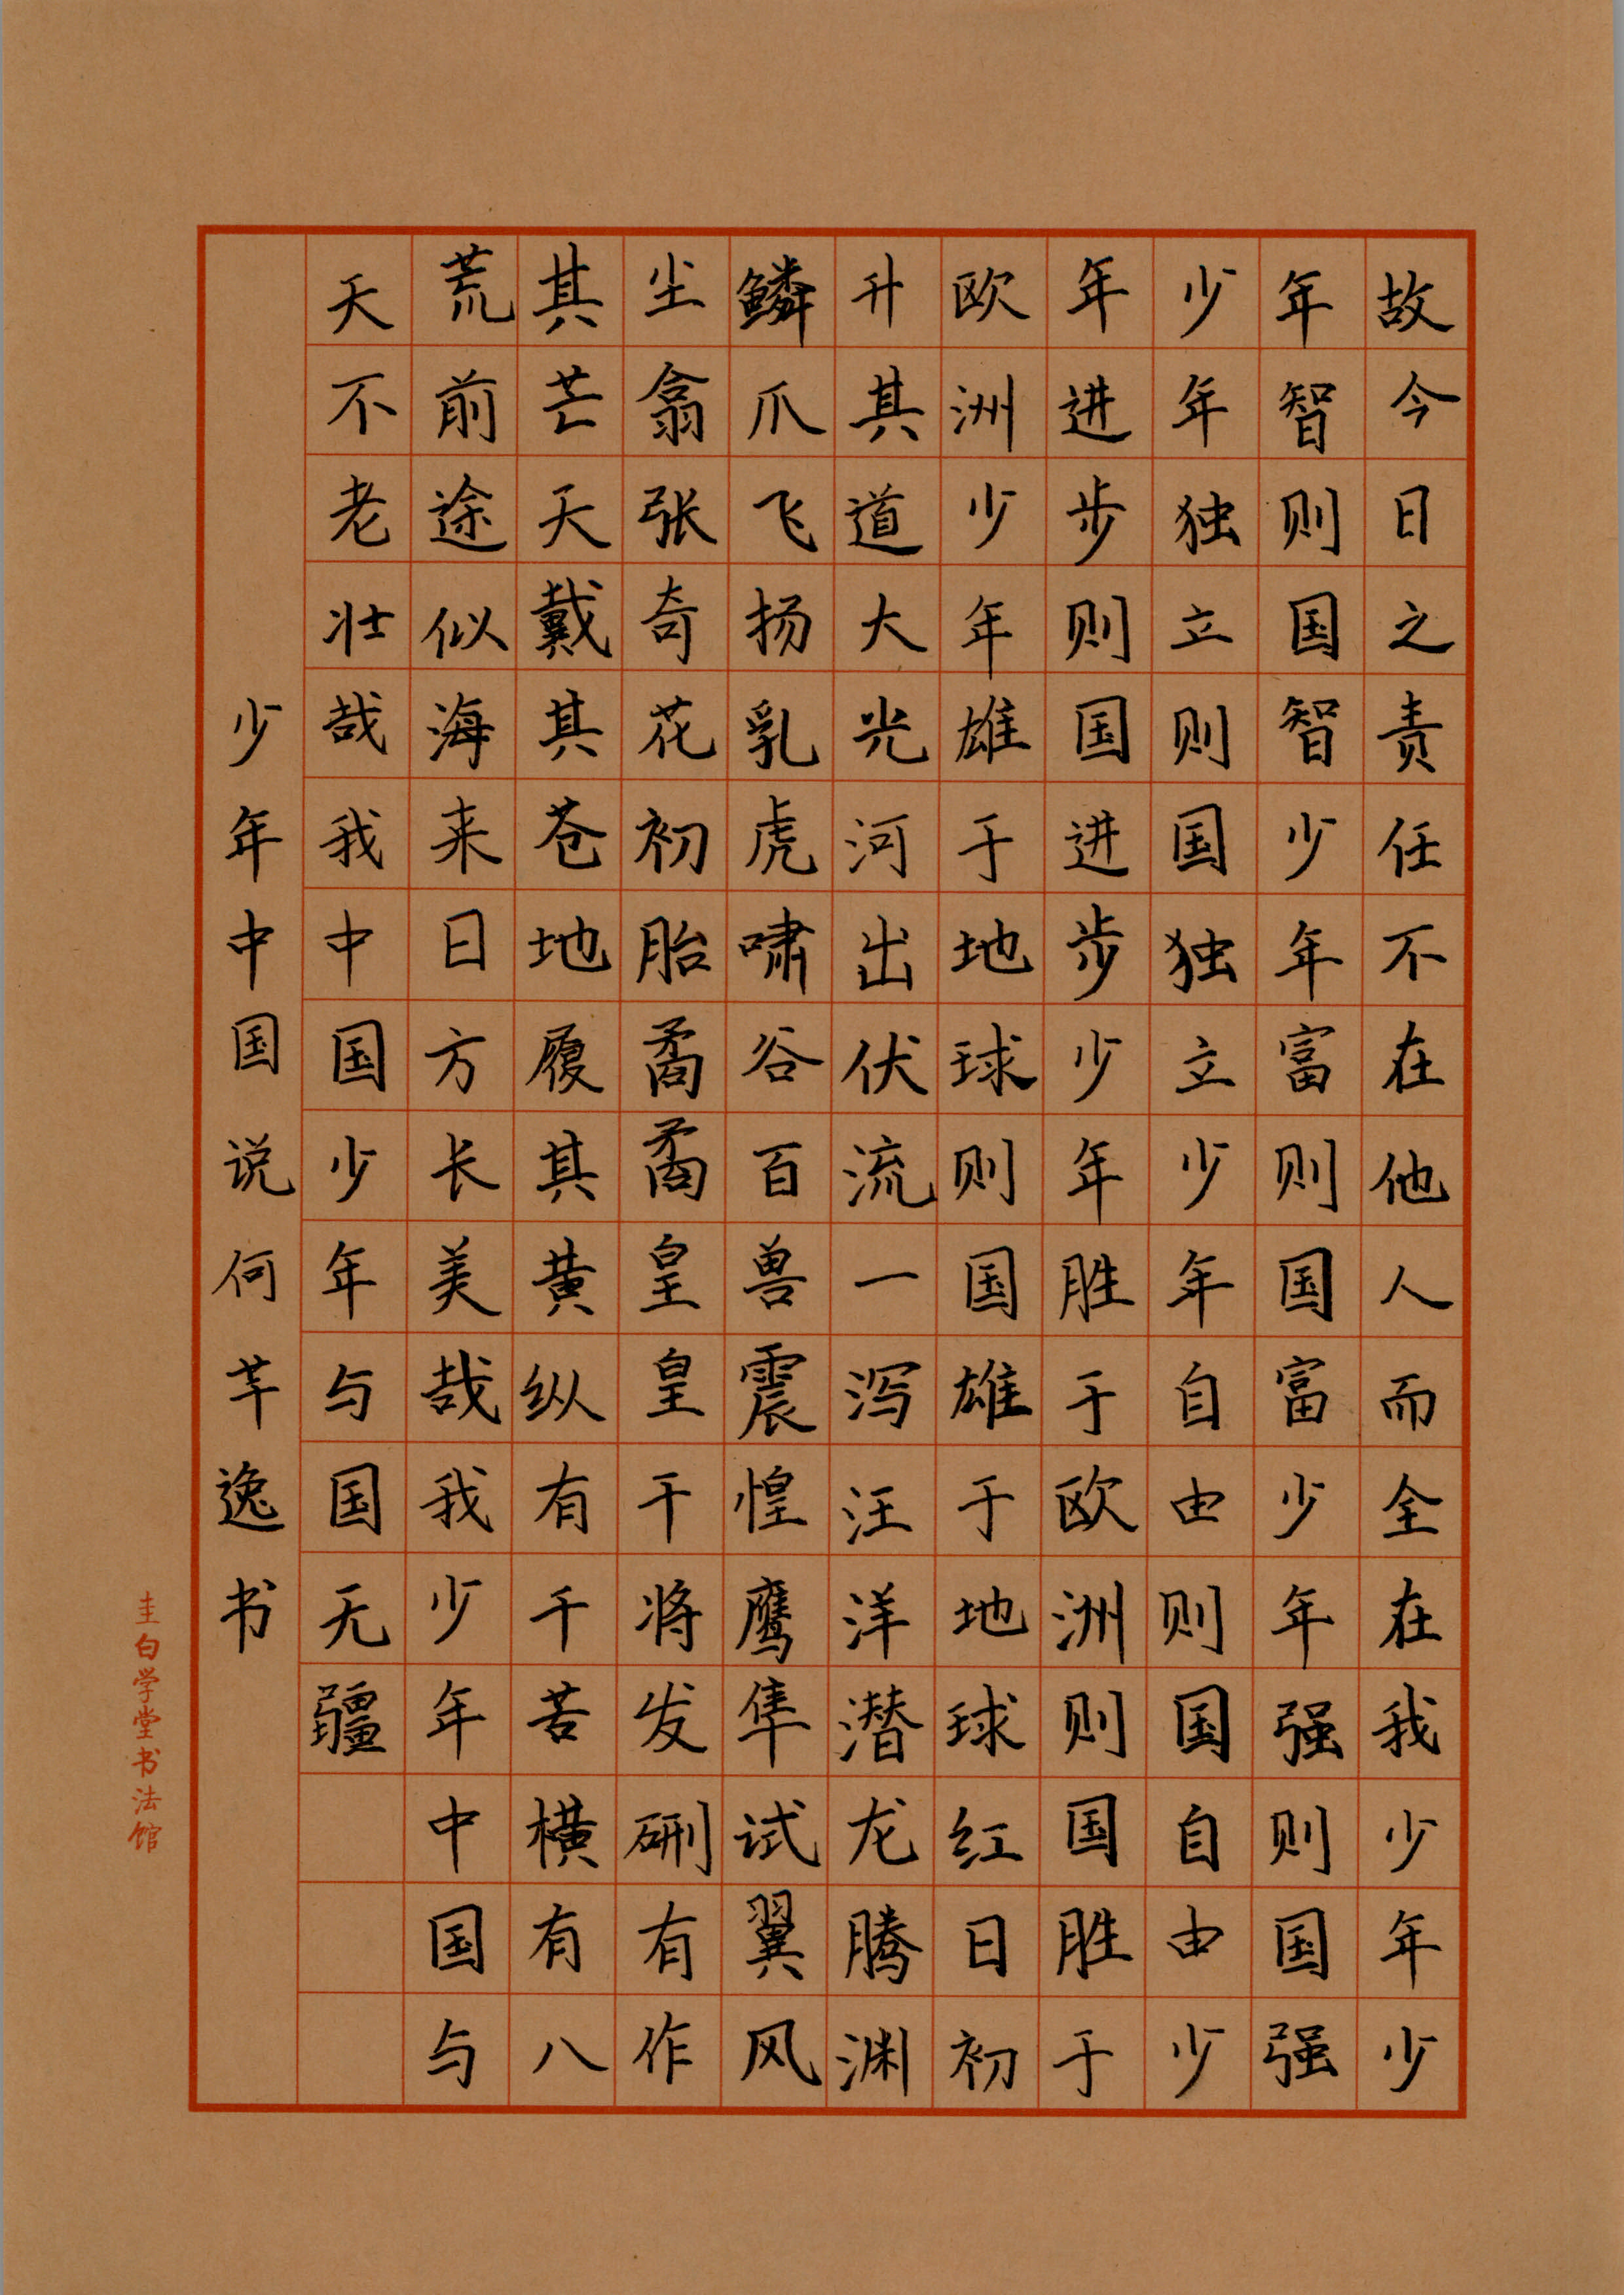 故今日之责任不在他人而全在我少年少
年智则国智少年富则国富少年强则国强
少年独立则国独立少年自由则国自由少
年进步则国进步少年胜于欧洲则国胜于
欧洲少年雄于地球则国雄于地球红日初
升其道大光河出伏流一泻汪洋潜龙腾渊
鳞爪飞扬乳虎啸谷百兽震惶鹰隼试翼风
尘翕张奇花初胎矞矞皇皇干将发硎有作
其芒天戴其苍地履其黄纵有千苦横有八
荒前途似海来日方长美哉我少年中国与
天不老壮哉我中国少年与国无疆
少年中国说何芊逸书
圭白学堂书法馆